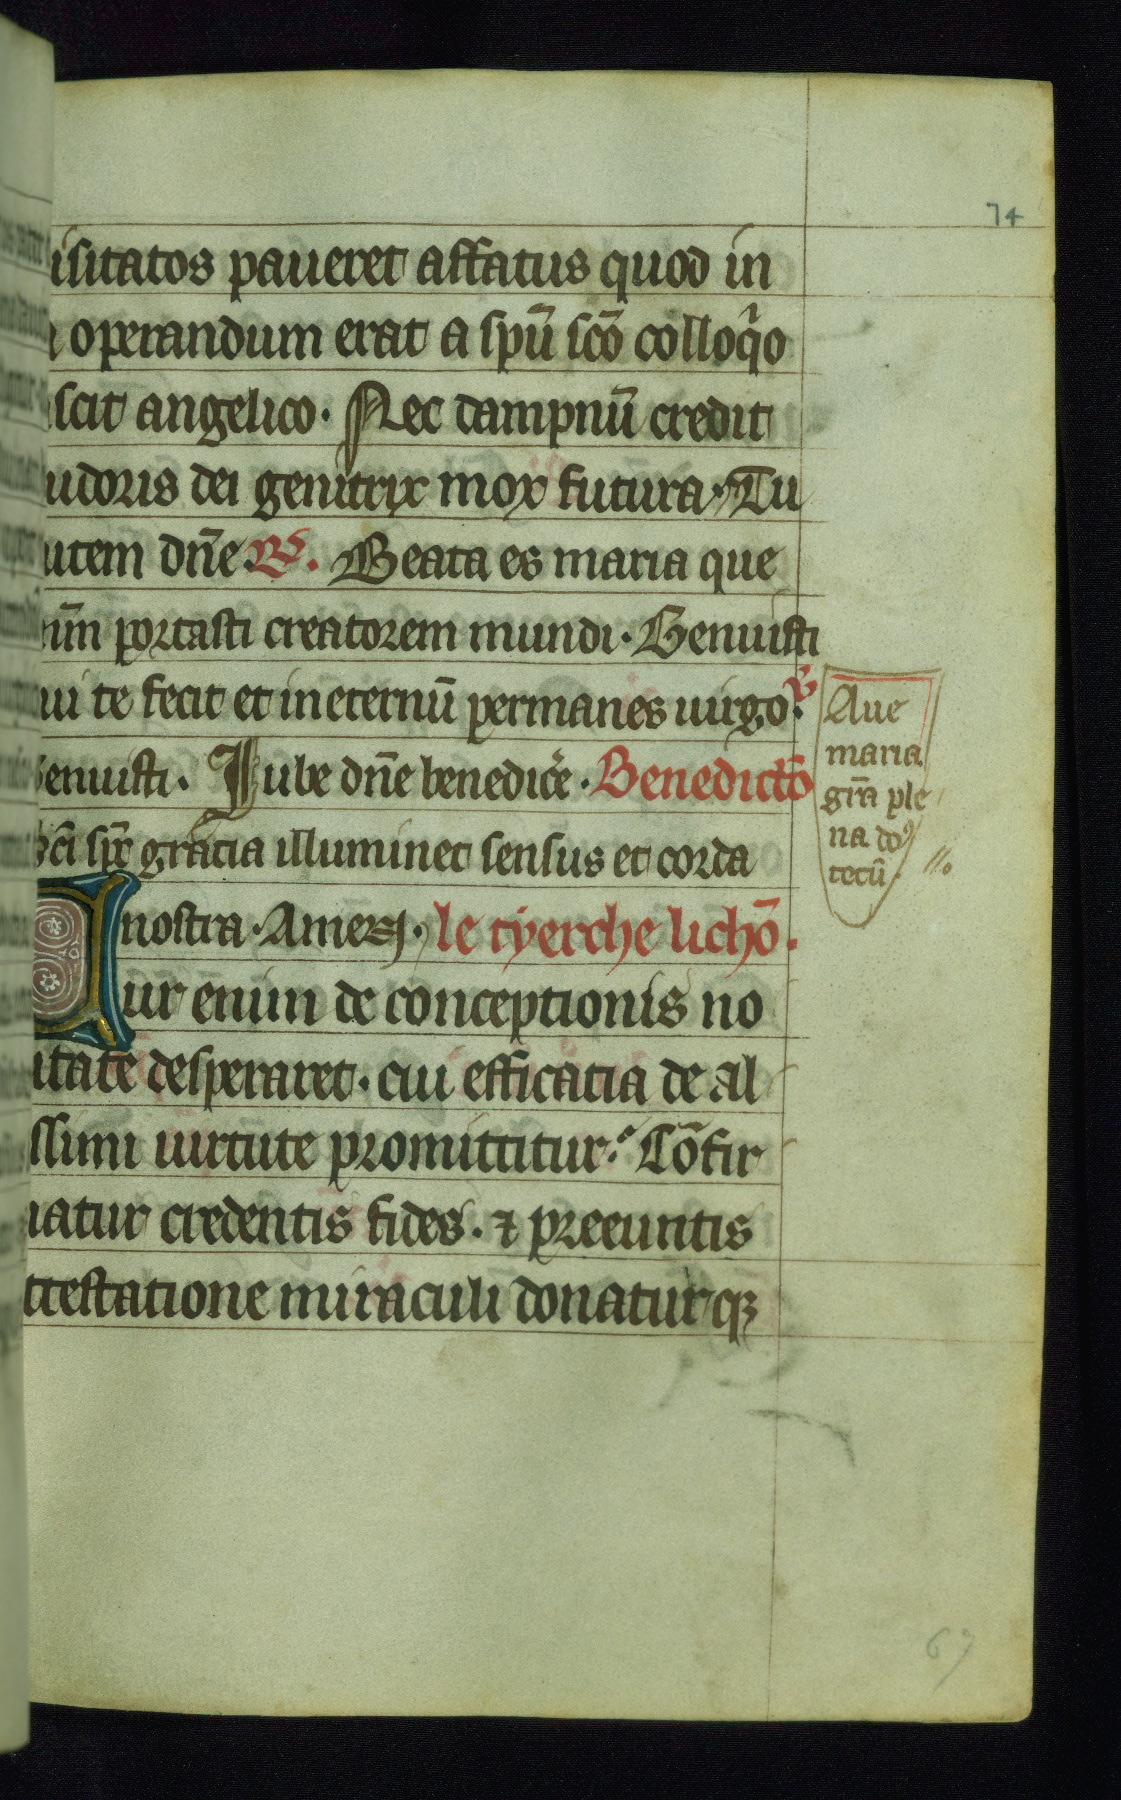 74
isitatos paueret affatus quod in
operandum erat a spū scō colloqͥo
scit angelico · Nec dampnū credit
udoris dei genitrix mox futura · Tu
utem dn̄e · R̸ . Beata es maria que
nm̄ portasti creatorem mundi · Genuisti
ui te fecit et in eternū permanes uirgo · V̸
enuisti · Iube dn̄e benedic̄e · Benedictō
sc̄i spr̄ gracia illuminet sensus et corda
nostra · Amen · le tyerche lichō .
Cur enim de conceptionis no
itate desperaret · cui efficacia de al
ssimi uirtute promittitur · Cōfir
atur credentis fides · ⁊ preeuntis
ttestatione miraculi donatur qꝫ
Aue
maria
grā ple
na doꝰ
tecū ·
67